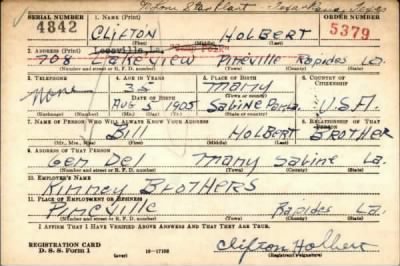 Lone Star Plant - Texarkana, Texas
SERIAL NUMBER 1. NAME (Print) ORDER NUMBER
4842 CLIFTON HOLBERT 5379
(First) (Middle) (Last)
2. ADDRESS (Print) Leesville, La.
708 LAKEVIEW PINEVILLE RAPIDES LA.
(Number and street or R. F. D. number) (Town) (County) (State)
3. TELEPHONE 4. AGE IN YEARS 5. PLACE OF BIRTH 6. COUNTRY OF CITIZENSHIP
None 35 MANY
DATE OF BIRTH (Town or county)
AUG 5 1905 SABINE U.S.A.
(Mo.) (Day) (Yr.) (State or country)
7. NAME OF PERSON WHO WILL ALWAYS KNOW YOUR ADDRESS 8. RELATIONSHIP OF THAT PERSON
BILL HOLBERT BROTHER
(Mr., Mrs., Miss) (First) (Middle) (Last)
9. ADDRESS OF THAT PERSON
GEN DEL MANY SABINE LA.
(Number and street or R. F. D. number) (Town) (County) (State)
10. EMPLOYER'S NAME
BROTHERS
11. PLACE OF EMPLOYMENT OR BUSINESS
PINEVILLE RAPIDES LA.
(Number and street or R. F. D. number) (Town) (County) (State)
I AFFIRM THAT I HAVE VERIFIED ABOVE ANSWERS AND THAT THEY ARE TRUE.
REGISTRATION CARD
D. S. S. Form 1 16-17105 Clifton Holbert
(Registrant's signature)